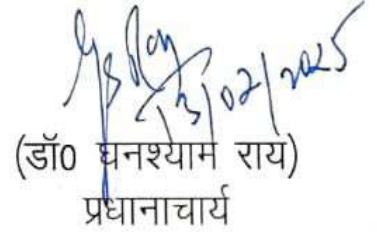 GS Roy
13/02/2025
(डॉ0 घनश्याम राय)
प्रधानाचार्य